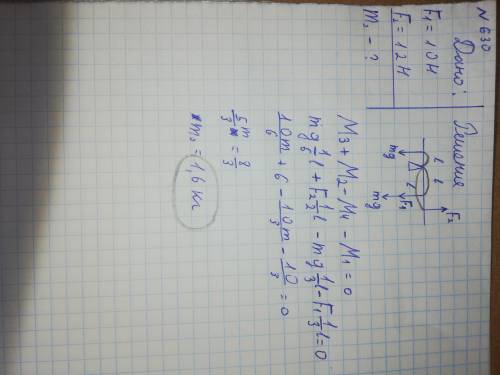 N 630
Дано:
F₁ = 10 Н
F₂ = 12 Н
m₀ - ?
Решение
F₂
l l
l
F₁
mg
mg
M₃ + M₂ - M₄ - M₁ = 0
mg 1/6 l + F₂ 1/2 l - mg 1/3 l - F₁ 1/3 l = 0
10m/6 + 6 - 10m/3 - 10/3 = 0
5/3 m = 8/3
m₀ = 1,6 кг